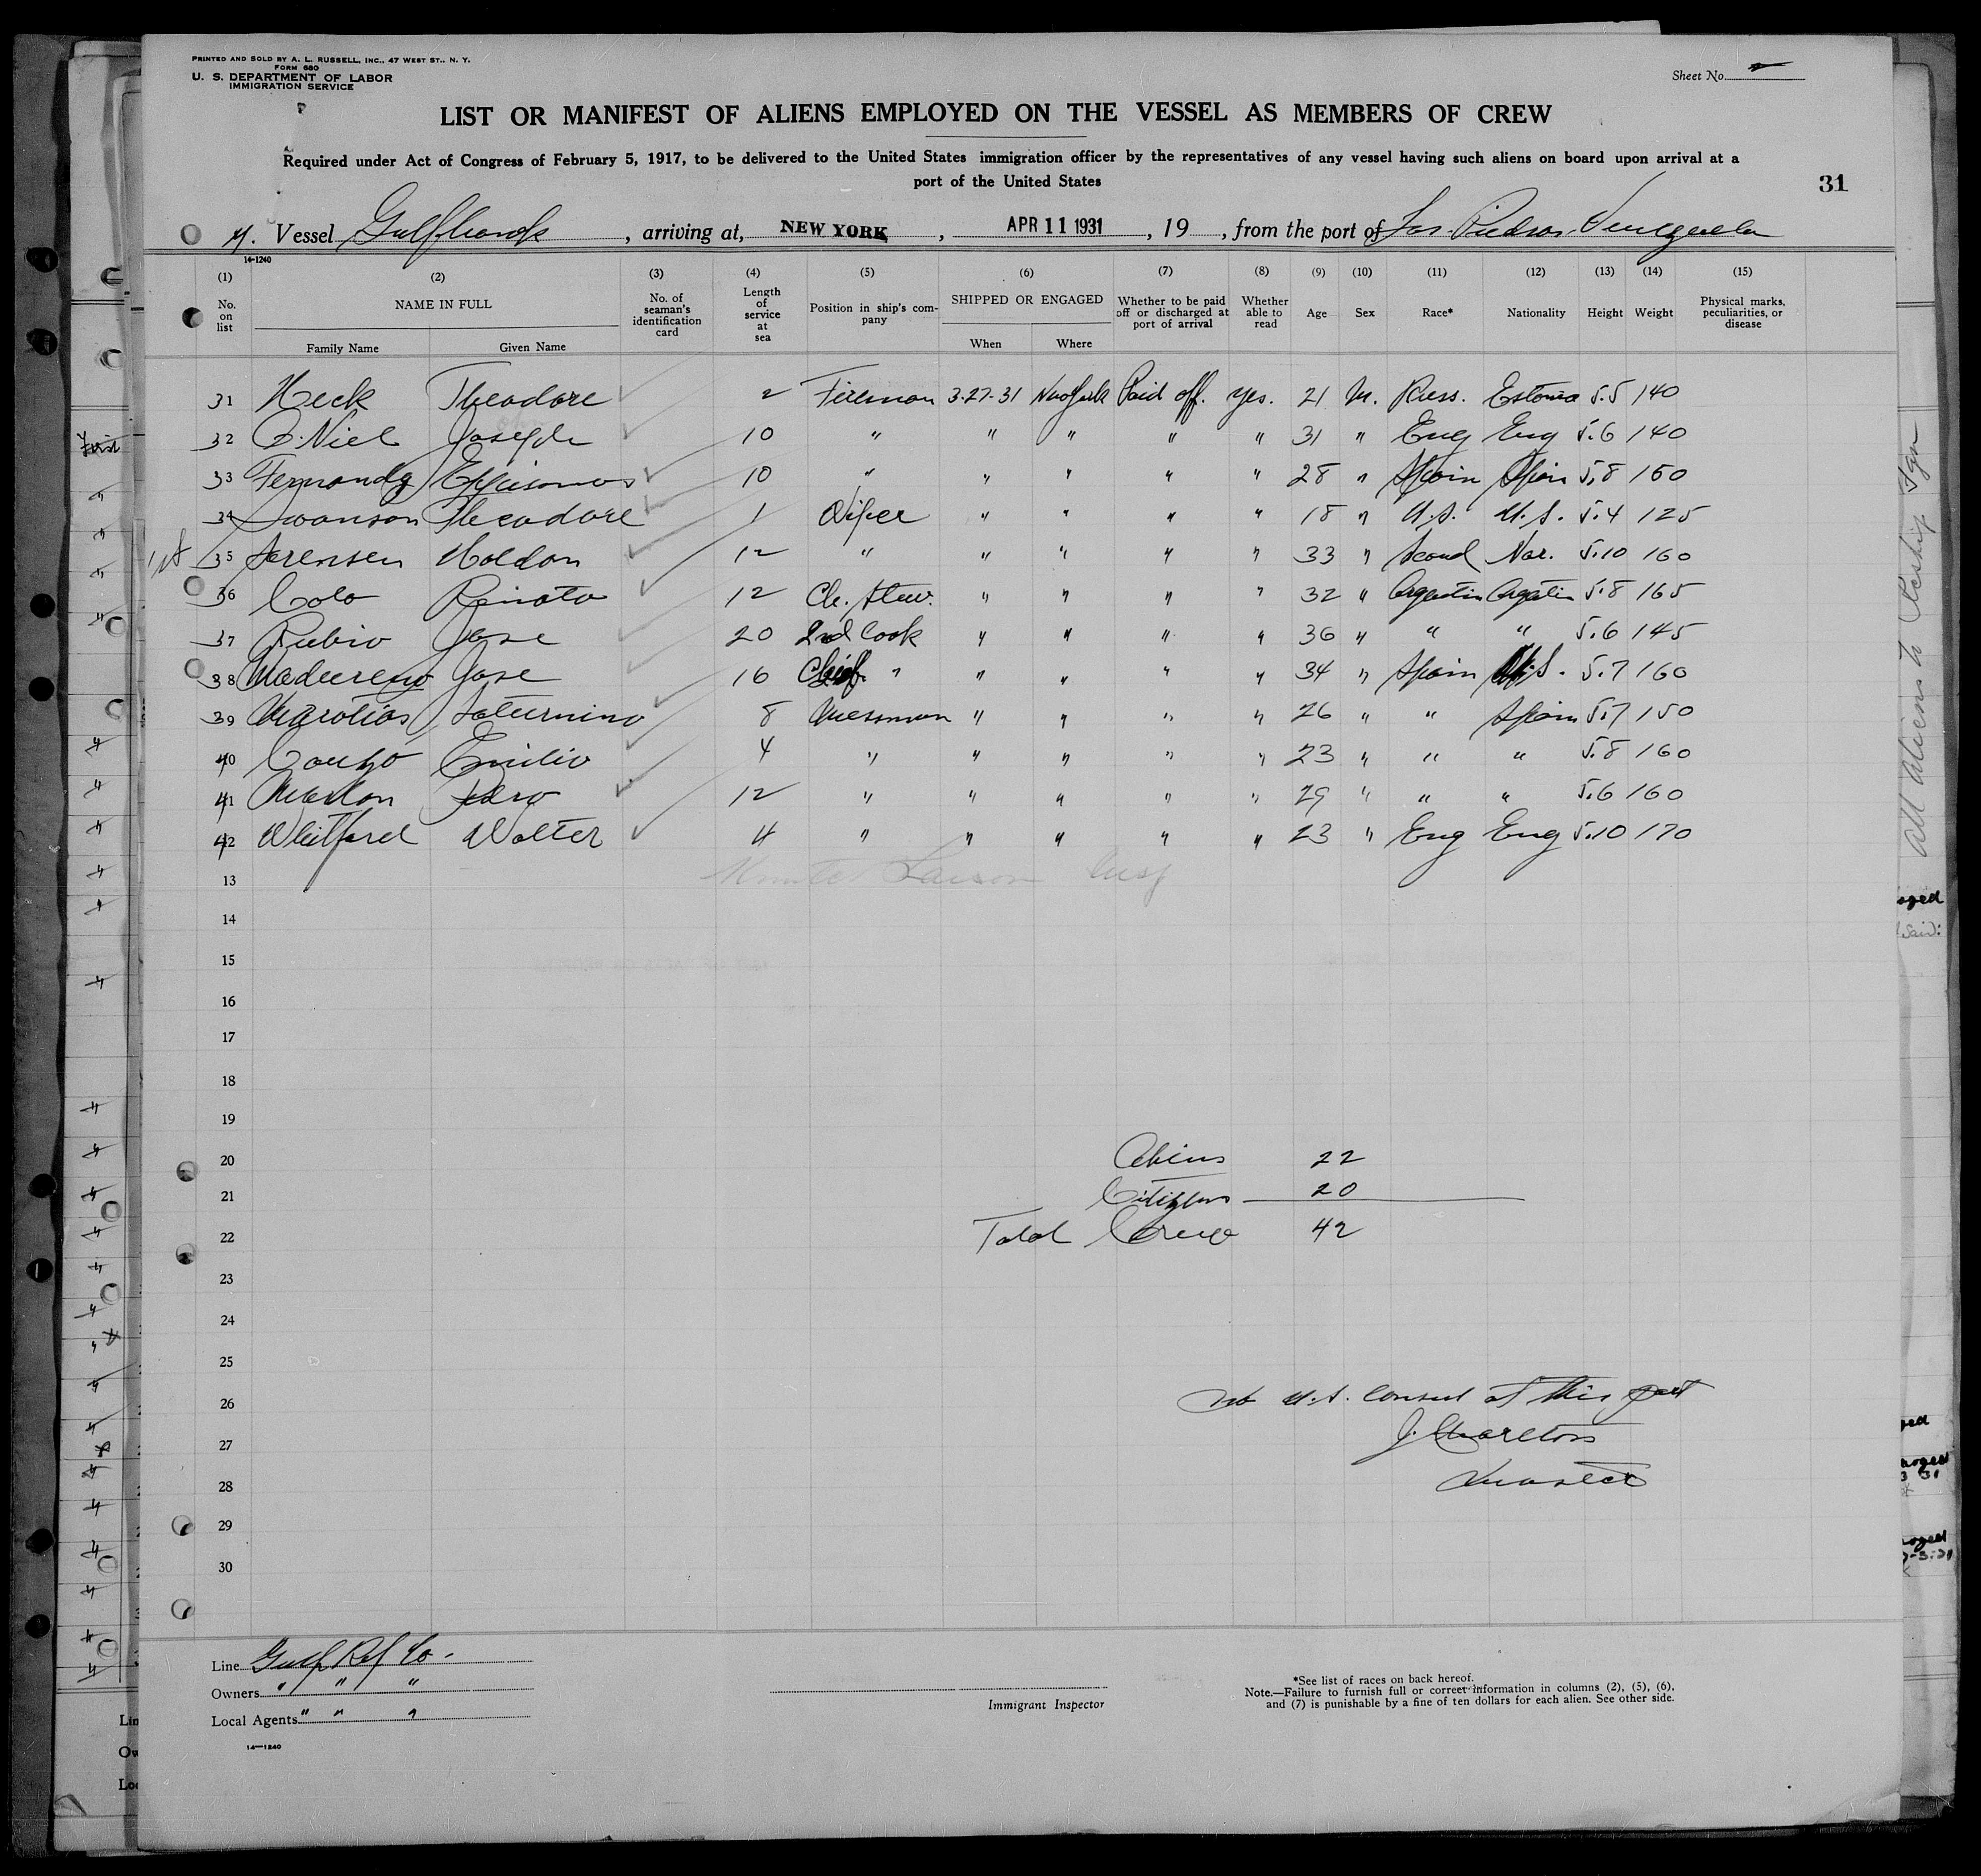 PRINTED AND SOLD BY A. L. RUSSELL, INC., 47 WEST ST., N. Y.
FORM 680
U. S. DEPARTMENT OF LABOR
IMMIGRATION SERVICE
Sheet No.
LIST OR MANIFEST OF ALIENS EMPLOYED ON THE VESSEL AS MEMBERS OF CREW
Required under Act of Congress of February 5, 1917, to be delivered to the United States immigration officer by the representatives of any vessel having such aliens on board upon arrival at a
port of the United States
31
Vessel , arriving at, NEW YORK , APR 11 1931 , 19 , from the port of Las Piedras Venezuela
14-1240
(1) (2) (3) (4) (5) (6) (7) (8) (9) (10) (11) (12) (13) (14) (15)
No. on list NAME IN FULL No. of seaman's identification card Length of service at sea Position in ship's company SHIPPED OR ENGAGED Whether to be paid off or discharged at port of arrival Whether able to read Age Sex Race* Nationality Height Weight Physical marks, peculiarities, or disease
Family Name Given Name When Where
31 Heck Theodore 2 Fireman 3-27-31 New York Paid off. yes. 21 M. Russ. Estonia 5.5 140
32 O.Niel Joseph 10 " " " " " 31 " Eng Eng 5.6 140
33 Fernandz 10 " " " " " 28 " Spain Spain 5.8 150
34 Swanson Theodore 1 Wiper " " " " 18 " U.S. U.S. 5.4 125
1st 35 Sorensen Holdon 12 " " " " " 33 " Scand Nor. 5.10 160
36 Colo Renato 12 Ch. Stew. " " " " 32 " Argentin Argatin 5.8 165
37 Rubio Jose 20 2nd Cook " " " " 36 " " " 5.6 145
38 Madureno Jose 16 Chief " " " " " 34 " Spain U.S. 5.7 160
39 Marotias Saturnino 8 Messman " " " " 26 " " Spain 5.7 150
40 Couzo Emilio 4 " " " " " 23 " " " 5.8 160
41 Marlon Pedro 12 " " " " " 29 " " " 5.6 160
42 Whitford Walter 4 " " " " " 23 " Eng Eng 5.10 170
13 Larson Insp
14
15
16
17
18
19
20 Aliens 22
21 Citizens 20
22 Total Crew 42
23
24
25
26 No U.S. Consul at this port
27 J. Charlton
28 Master
29
30
Line Gulf Ref Co.
Owners " " "
Local Agents " " "
14-1240
Immigrant Inspector
*See list of races on back hereof.
Note.—Failure to furnish full or correct information in columns (2), (5), (6),
and (7) is punishable by a fine of ten dollars for each alien. See other side.
First
All Aliens to Reship Sgn